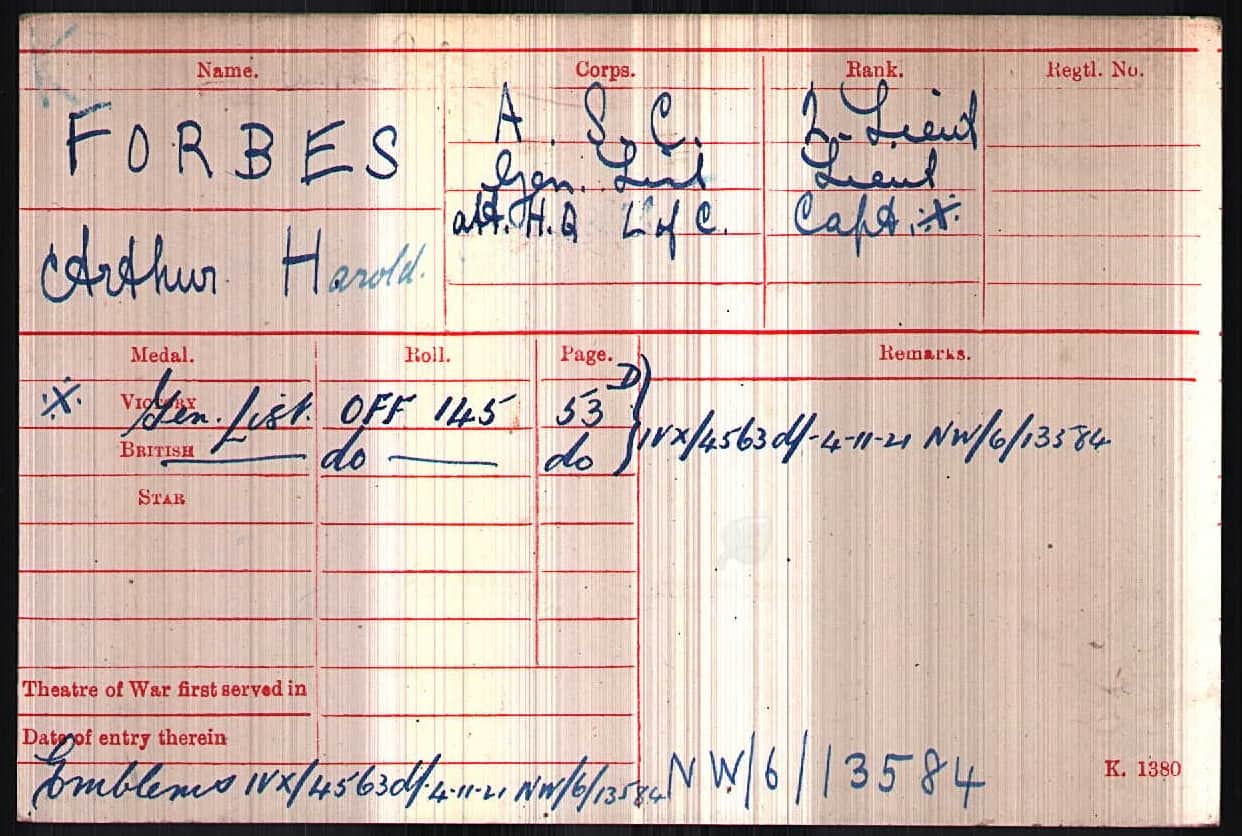 Name. Corps. Rank. Regtl. No.
FORBES A. S. C. 2. Lieut
Gen. List Lieut
Arthur Harold. att. H.Q L of C. Capt. ※
Medal. Roll. Page. Remarks.
※ VICTORY Gen. List. OFF 145 53 D
BRITISH do do IVX/4563 d/-4-11-21 NW/6/13584
STAR
Theatre of War first served in
Date of entry therein
Emblems IVX/4563 d/-4-11-21 NW/6/13584 NW/6/13584
K. 1380